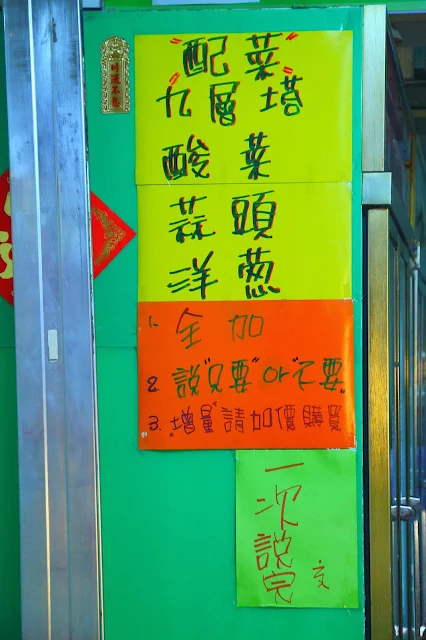 "配菜"
九層塔
酸菜
蒜頭
洋蔥
1. 全加
2. 說"只要"or"不要"
3. "增量"請加價購買
一次說完